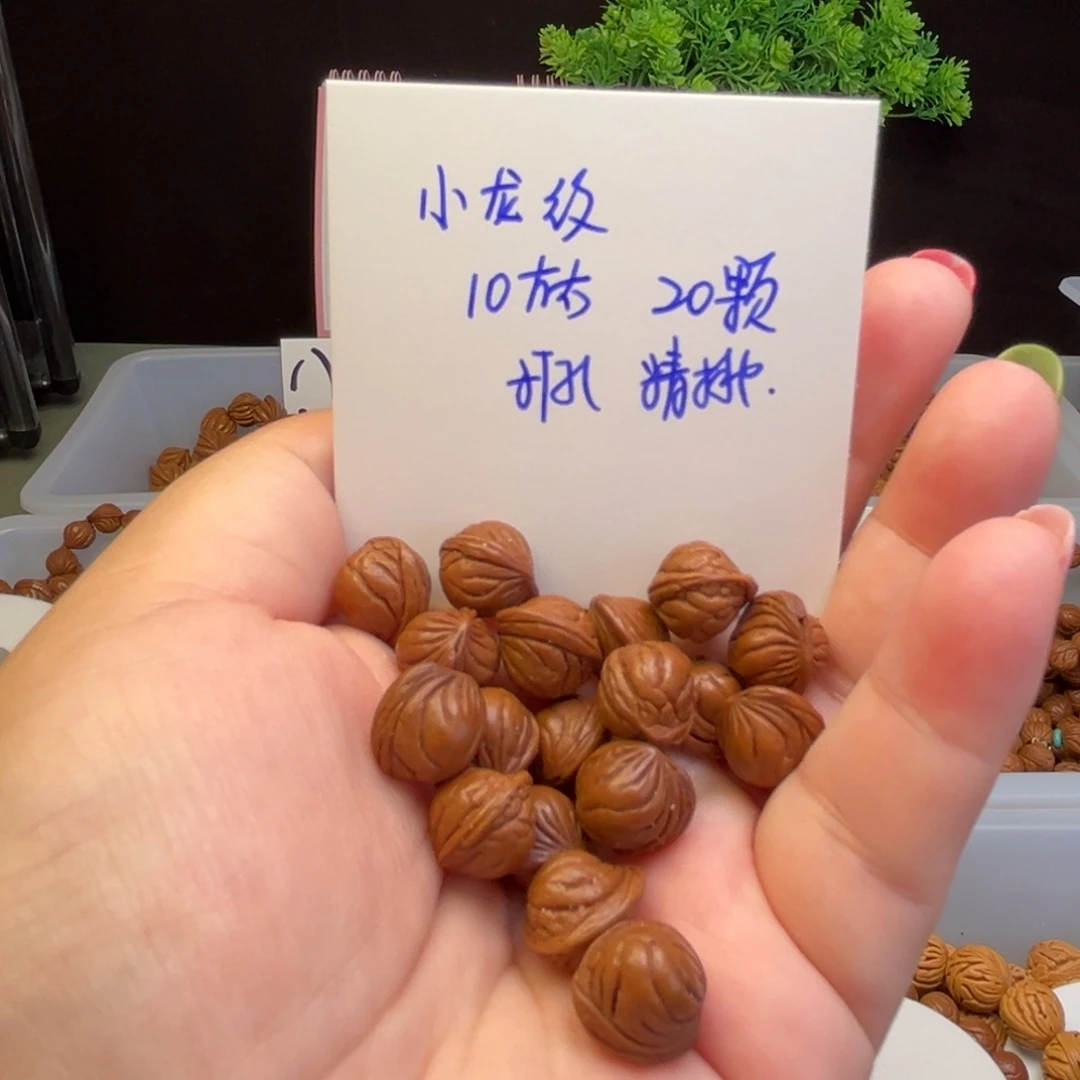 小龙纹
10左右 20颗
开孔 精挑.